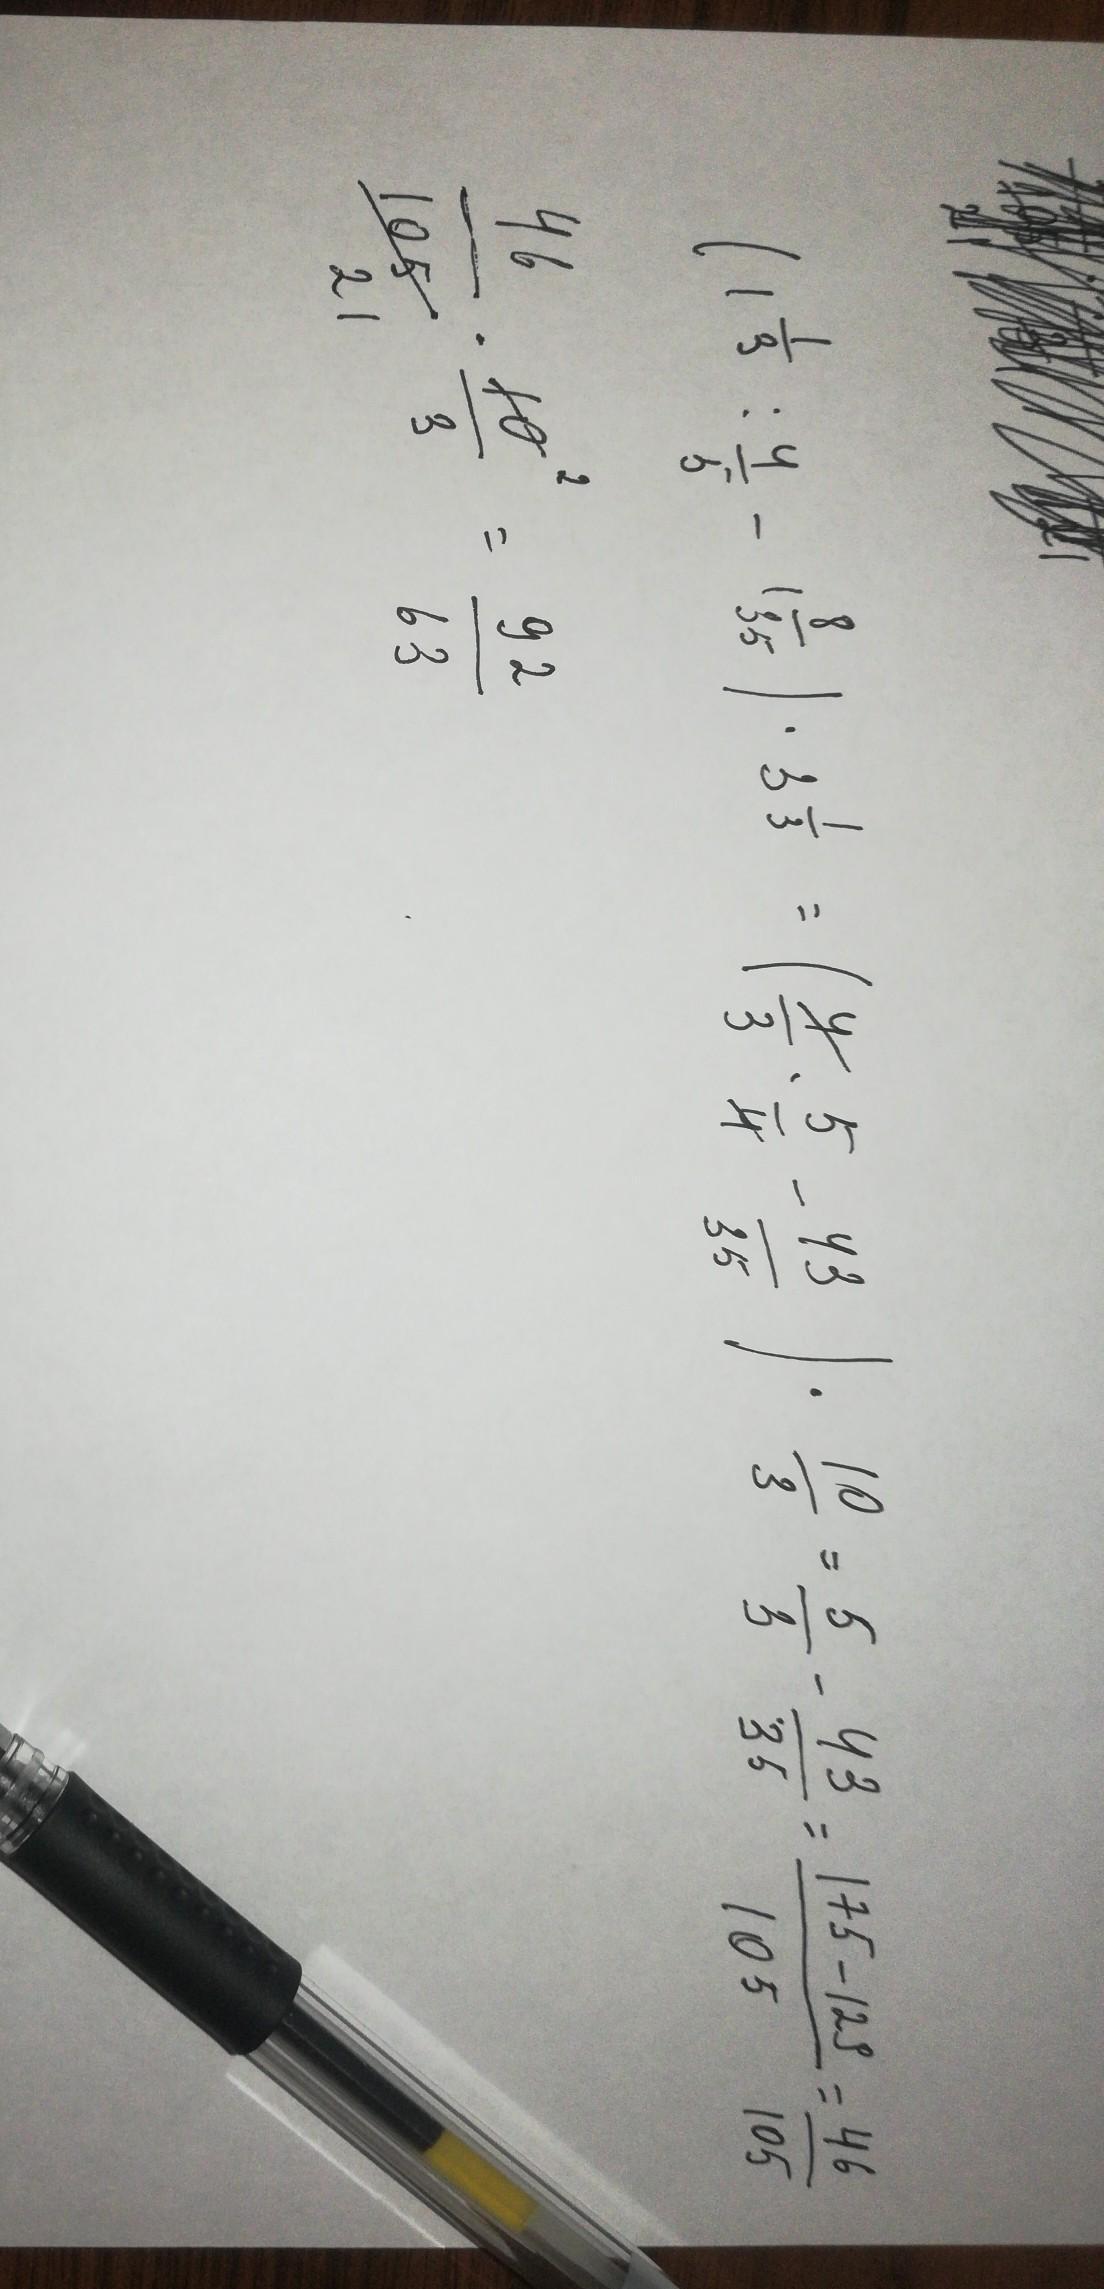 (1 1/3 : 4/5 - 1 8/35) · 3 1/3 = (4/3 · 5/4 - 43/35) · 10/3 = 5/3 - 43/35 = 175-129/105 = 46/105
46/105 21 · 10/3 2 = 92/63